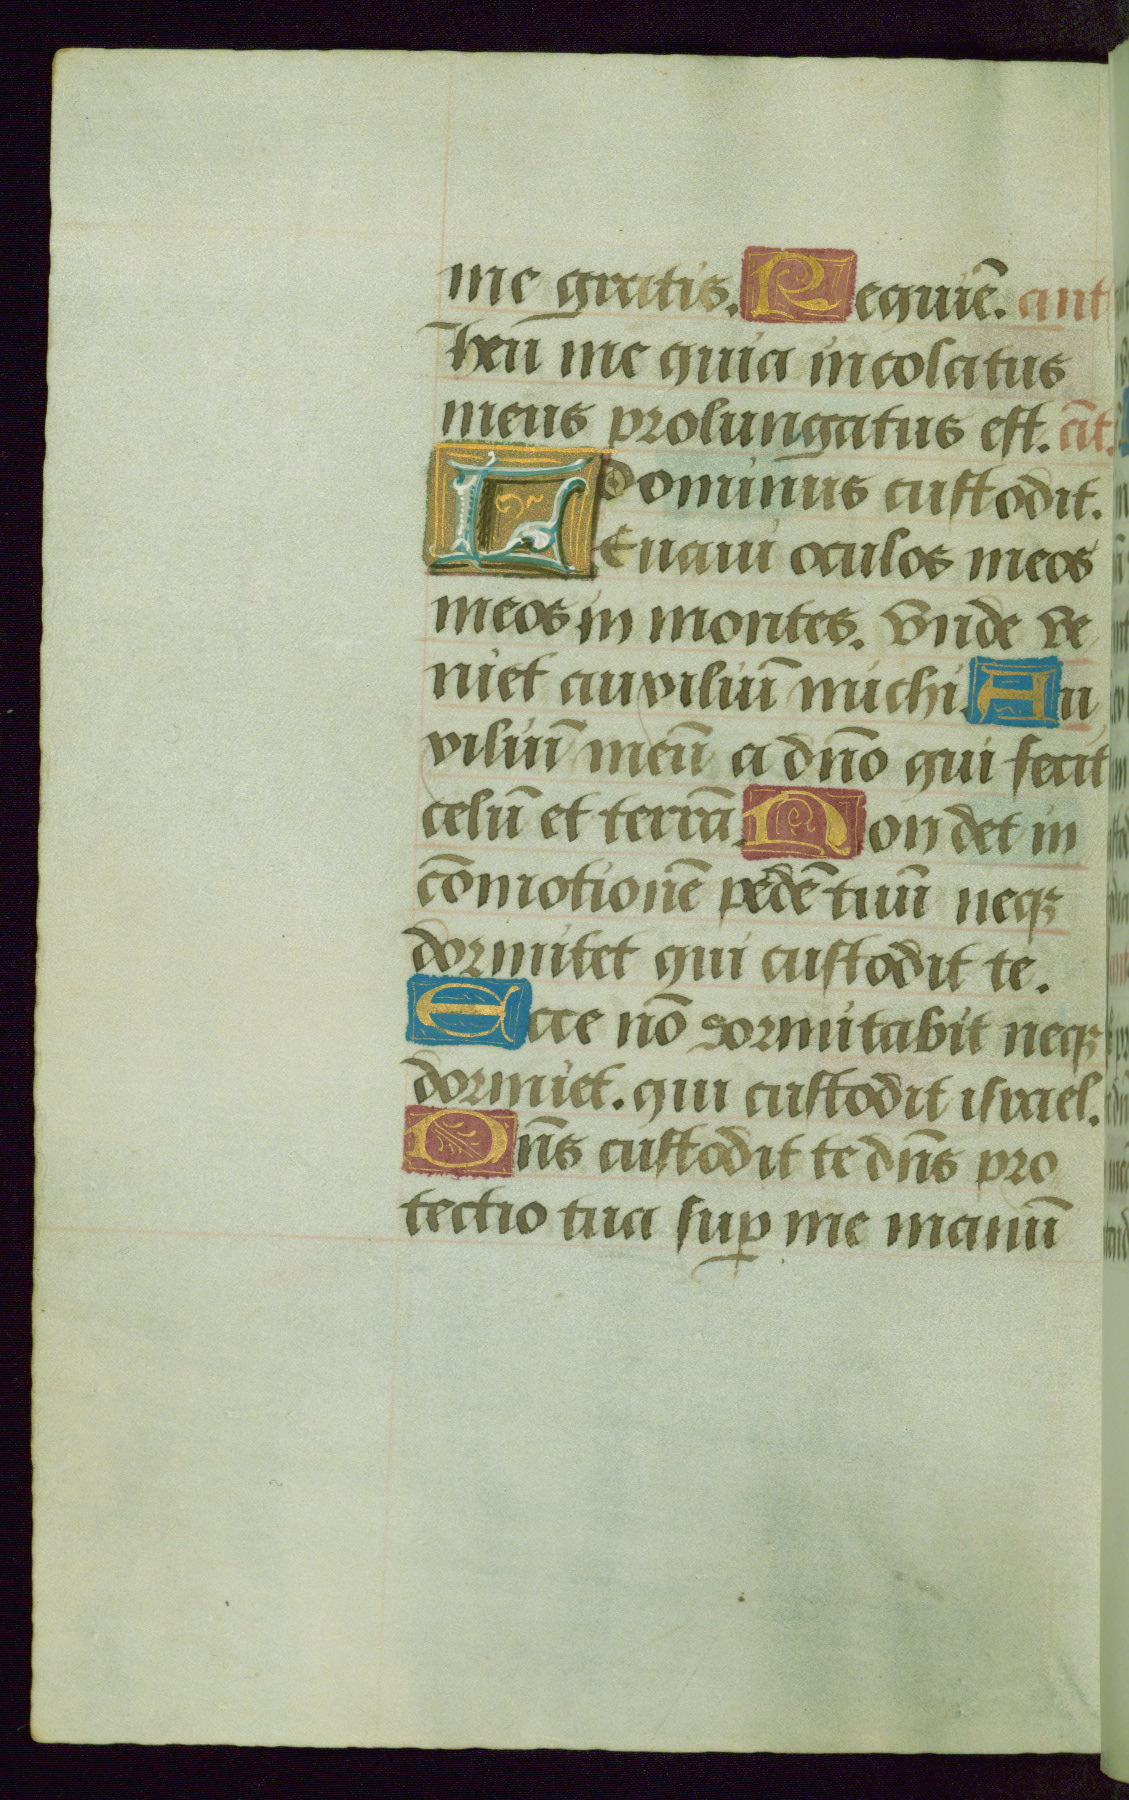 me gratis. Requiē. ant
heu me quia incolatus
meus prolungatus est. āt.
Dominus custodit.
Leuaui oculos meos
meos in montes. Vnde ve
niet auxiliuī michi. Au
xiliuī meū a dn̄o qui fecit
celū et terrā. Non det in
cōmotionē pedē tuuī neqꝫ
dormitet qui custodit te.
Ecce nō dormitabit neqꝫ
dormiet. qui custodit israel.
Dn̄s custodit te dn̄s pro
tectio tua suꝑ me manū